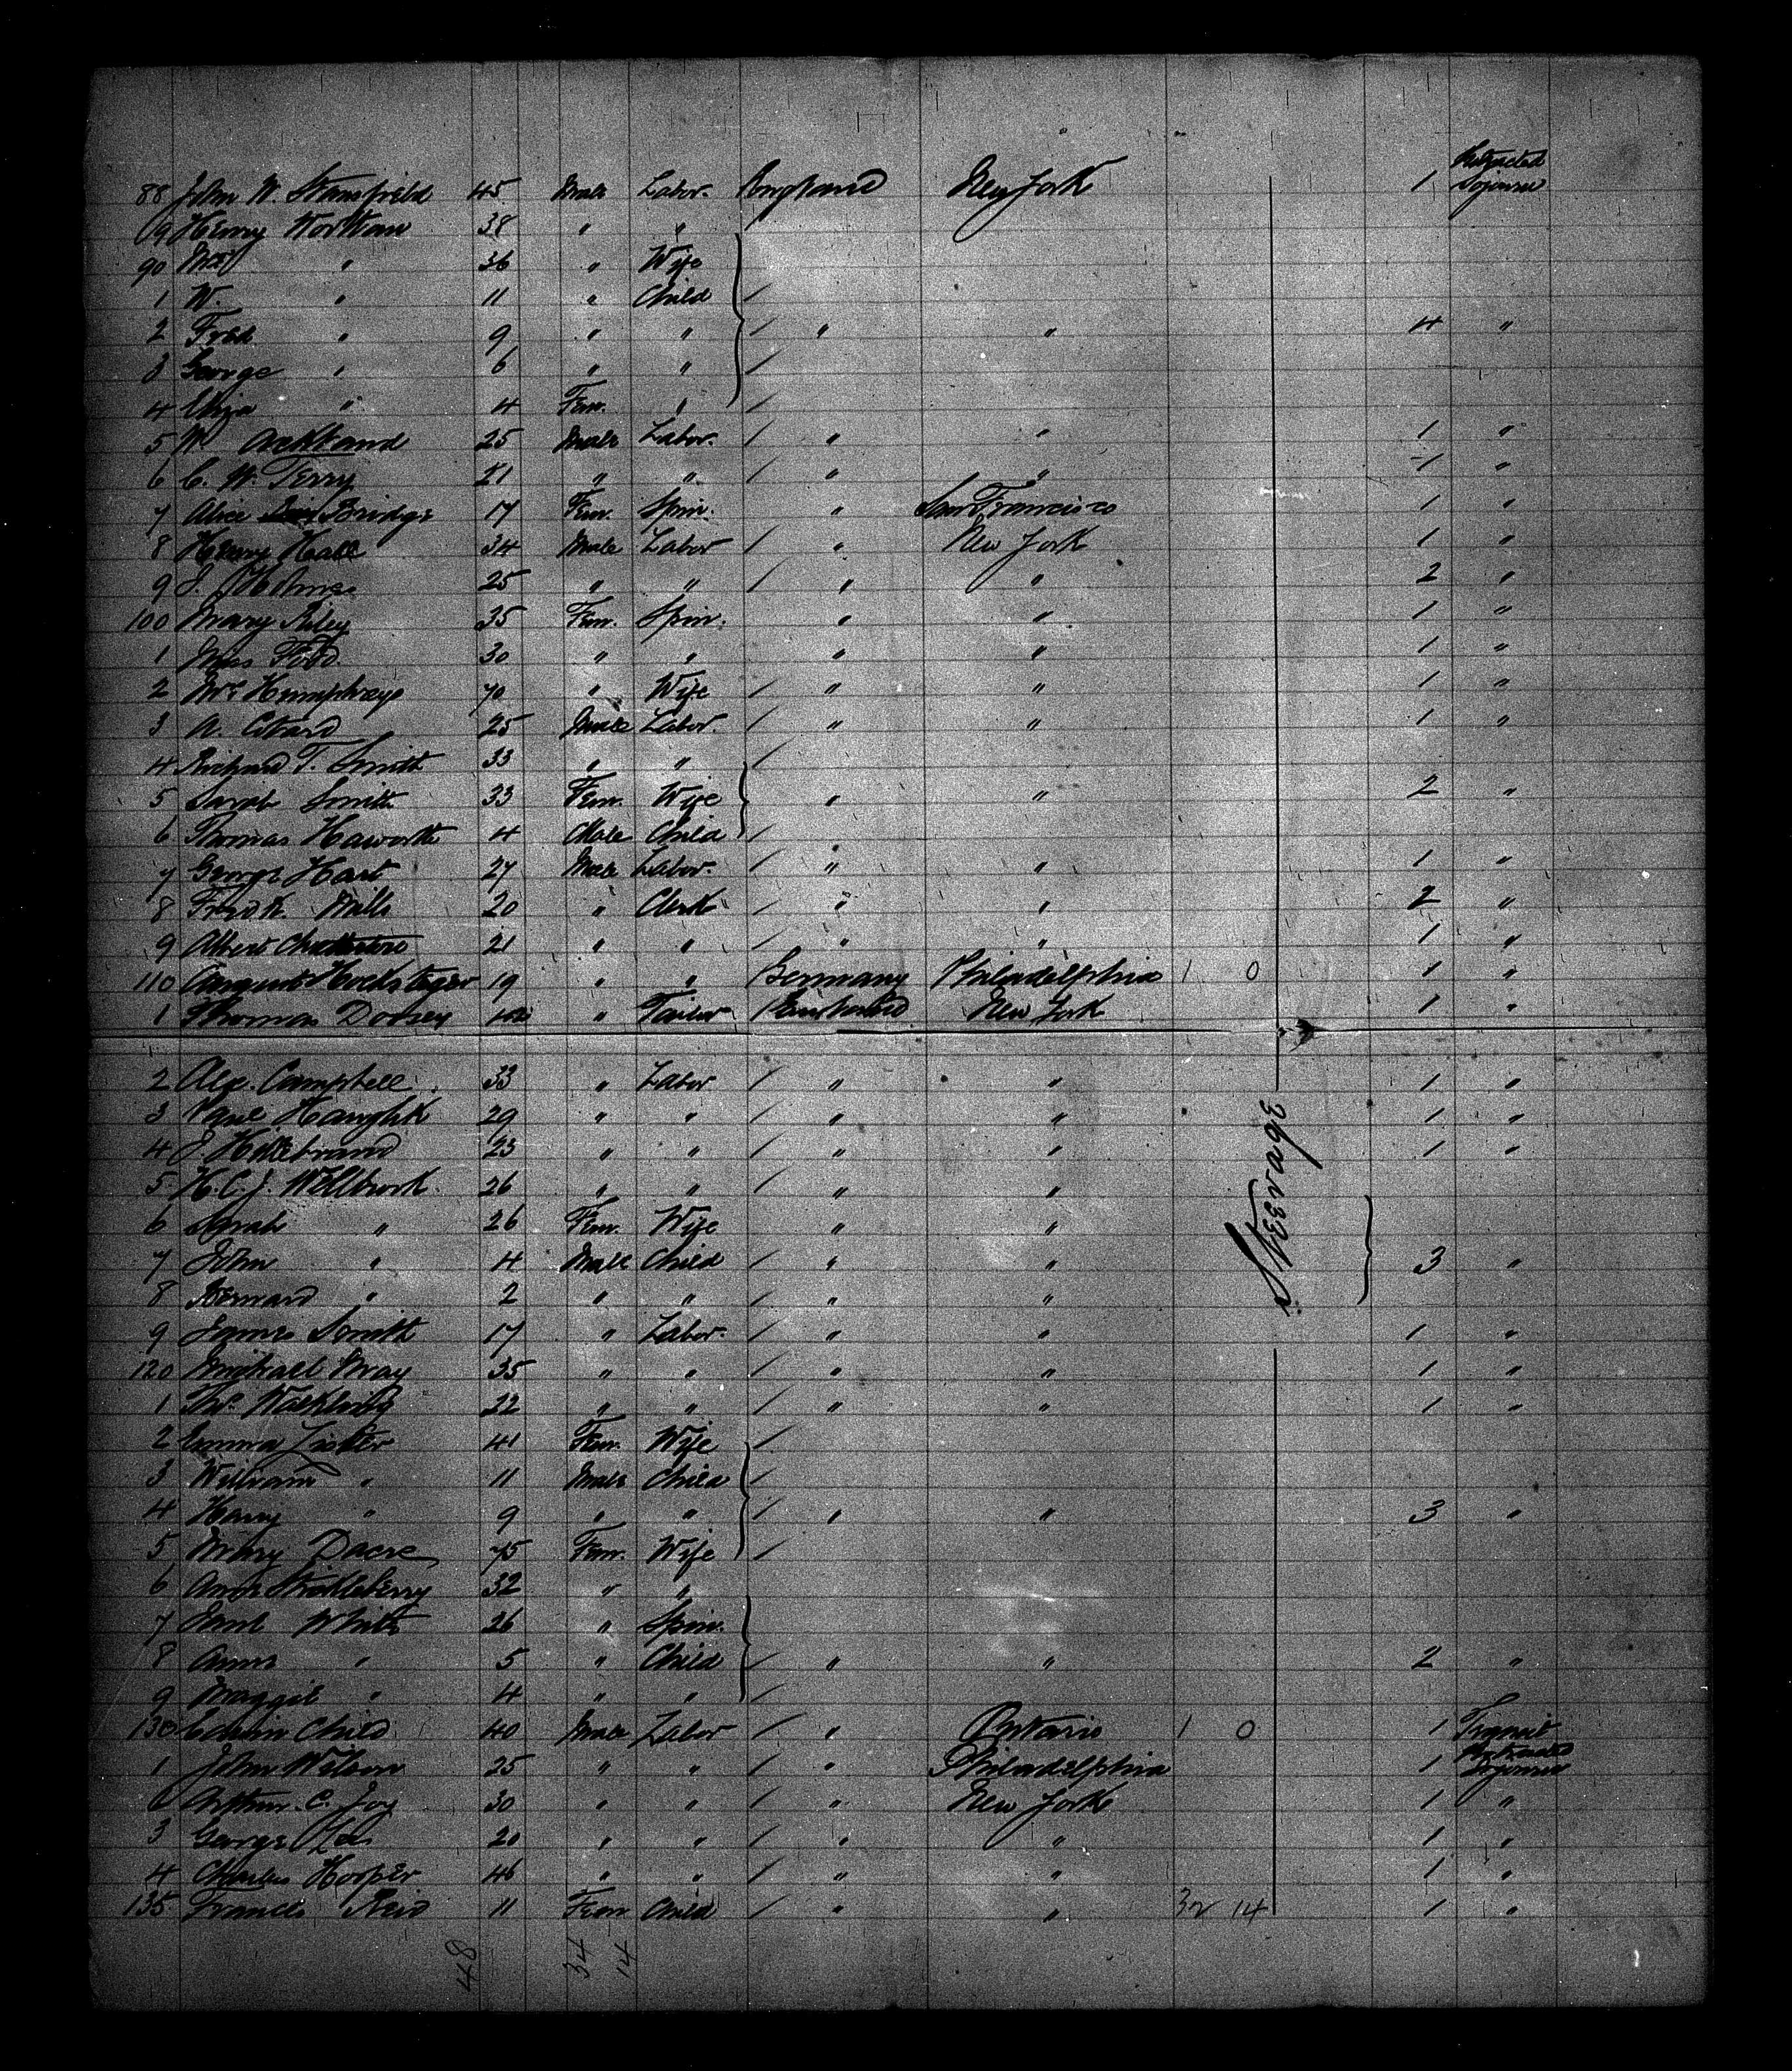 88 John W. Stansfield 45 Male Labor. England New York 1 Protracted Sojourn
9 Henry 38 " "
90 " 36 " Wife
1 W. " 11 " Child /
2 Fred " 9 " " / " " 4 "
3 George " 6 " " /
4 Eliza " 4 Fem. " /
5 W. Ackland 25 Male Labor. / " " 1 "
6 C. W. Terry 21 " " / " " 1 "
7 Alice Bridge 17 Fem. Spin. " San Francisco 1 "
8 Henry Hall 34 Male Labor / " New York 1 "
9 J. Holmes 25 " " / " " 2 "
100 Mary Riley 35 Fem. Spin. " " 1 "
1 Ford 30 " " " " 1 "
2 Mrs Humphreys 70 " Wife / " " 1 "
3 A. 25 Male Labor. / " " 1 "
4 Richard T. Smith 33 " " /
5 Sarah Smith 33 Fem. Wife " " 2 "
6 Thomas Haworth 4 Male Child /
7 George Hart 27 Male Labor. / " " 1 "
8 Fredk. Mills 20 " Clerk / " " 2 "
9 Albert 21 " " / " " 1 "
110 August 19 " " Germany Philadelphia 1 0 1 "
1 Thomas Dorsey " Tailor England New York 1 "
2 Alex. Campbell 33 " Labor / " " 1 "
3 29 " " / " " 1 "
4 J Hillebrand 23 " " / " " 1 "
5 H. C. J. Wellbrock 26 " " / " "
6 Sarah " 26 Fem. Wife " "
7 John " 4 Male Child / " " 3 "
8 Bernard " 2 " " / " "
Steerage
9 James Smith 17 " Labor. / " " 1 "
120 Michael Bray 35 " " / " " 1 "
1 Ths. 22 " " / " " 1 "
2 Emma Lister 41 Fem. Wife /
3 William " 11 Male Child /
4 Harry " 9 " " / " " 3 "
5 Mary Dacre 75 Fem. Wife /
6 Ann 32 " "
7 White 26 " Spin.
8 Anna " 5 " Child / " " 2 "
9 Maggie " 4 " " /
130 Edwin Child 40 Male Labor / " Ontario 1 0 1 Transit
1 John Wilson 25 " " / " Philadelphia 1 Protracted Sojourn
Arthur. C. Joy 30 " " / " New York 1 "
3 George Lee 20 " " / " " 1 "
4 Charles Hooper 46 " " / " " 1 "
135 Francis Reid 11 Fem Child / " " 32 14 1 "
48 34 14